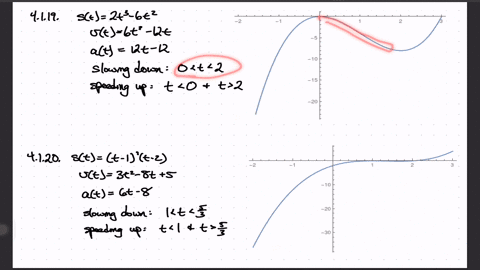 4.1.19. s(t)=2t³-6t²
v(t)=6t²-12t
a(t)=12t-12
slowing down: 0<t<2
speeding up: t<0 + t>2
-2 -1 1 2 3
-5
-10
-15
-20
4.1.20. s(t)=(t-1)²(t-2)
v(t)=3t²-8t+5
a(t)=6t-8
slowing down: 1<t<5/3
speeding up: t<1 & t>5/3
-2 -1 1 2 3
-10
-20
-30